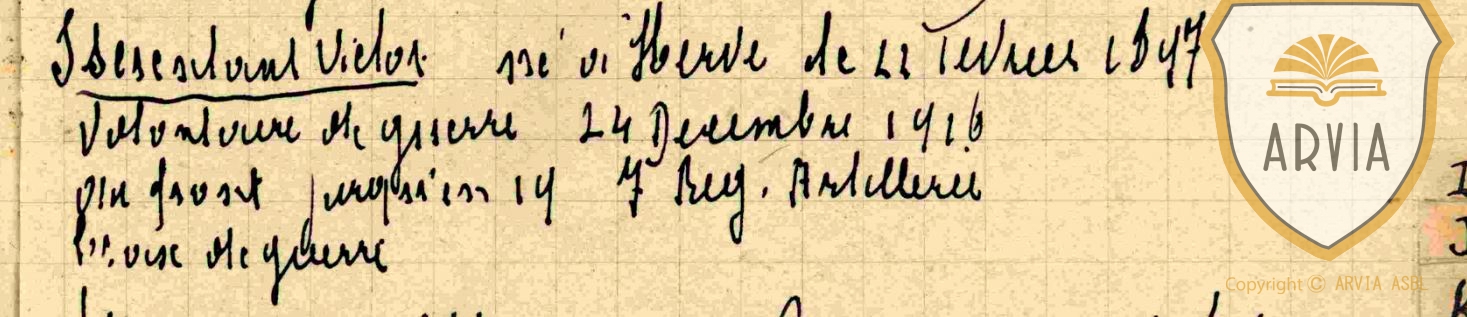 Victor né à Herve le 22 Fevrier 1897
Volontaire de guerre 24 Decembre 1916
au front jusqu'en 19 7 Reg. Artillerie
Croix de guerre
ARVIA
Copyright © ARVIA ASBL